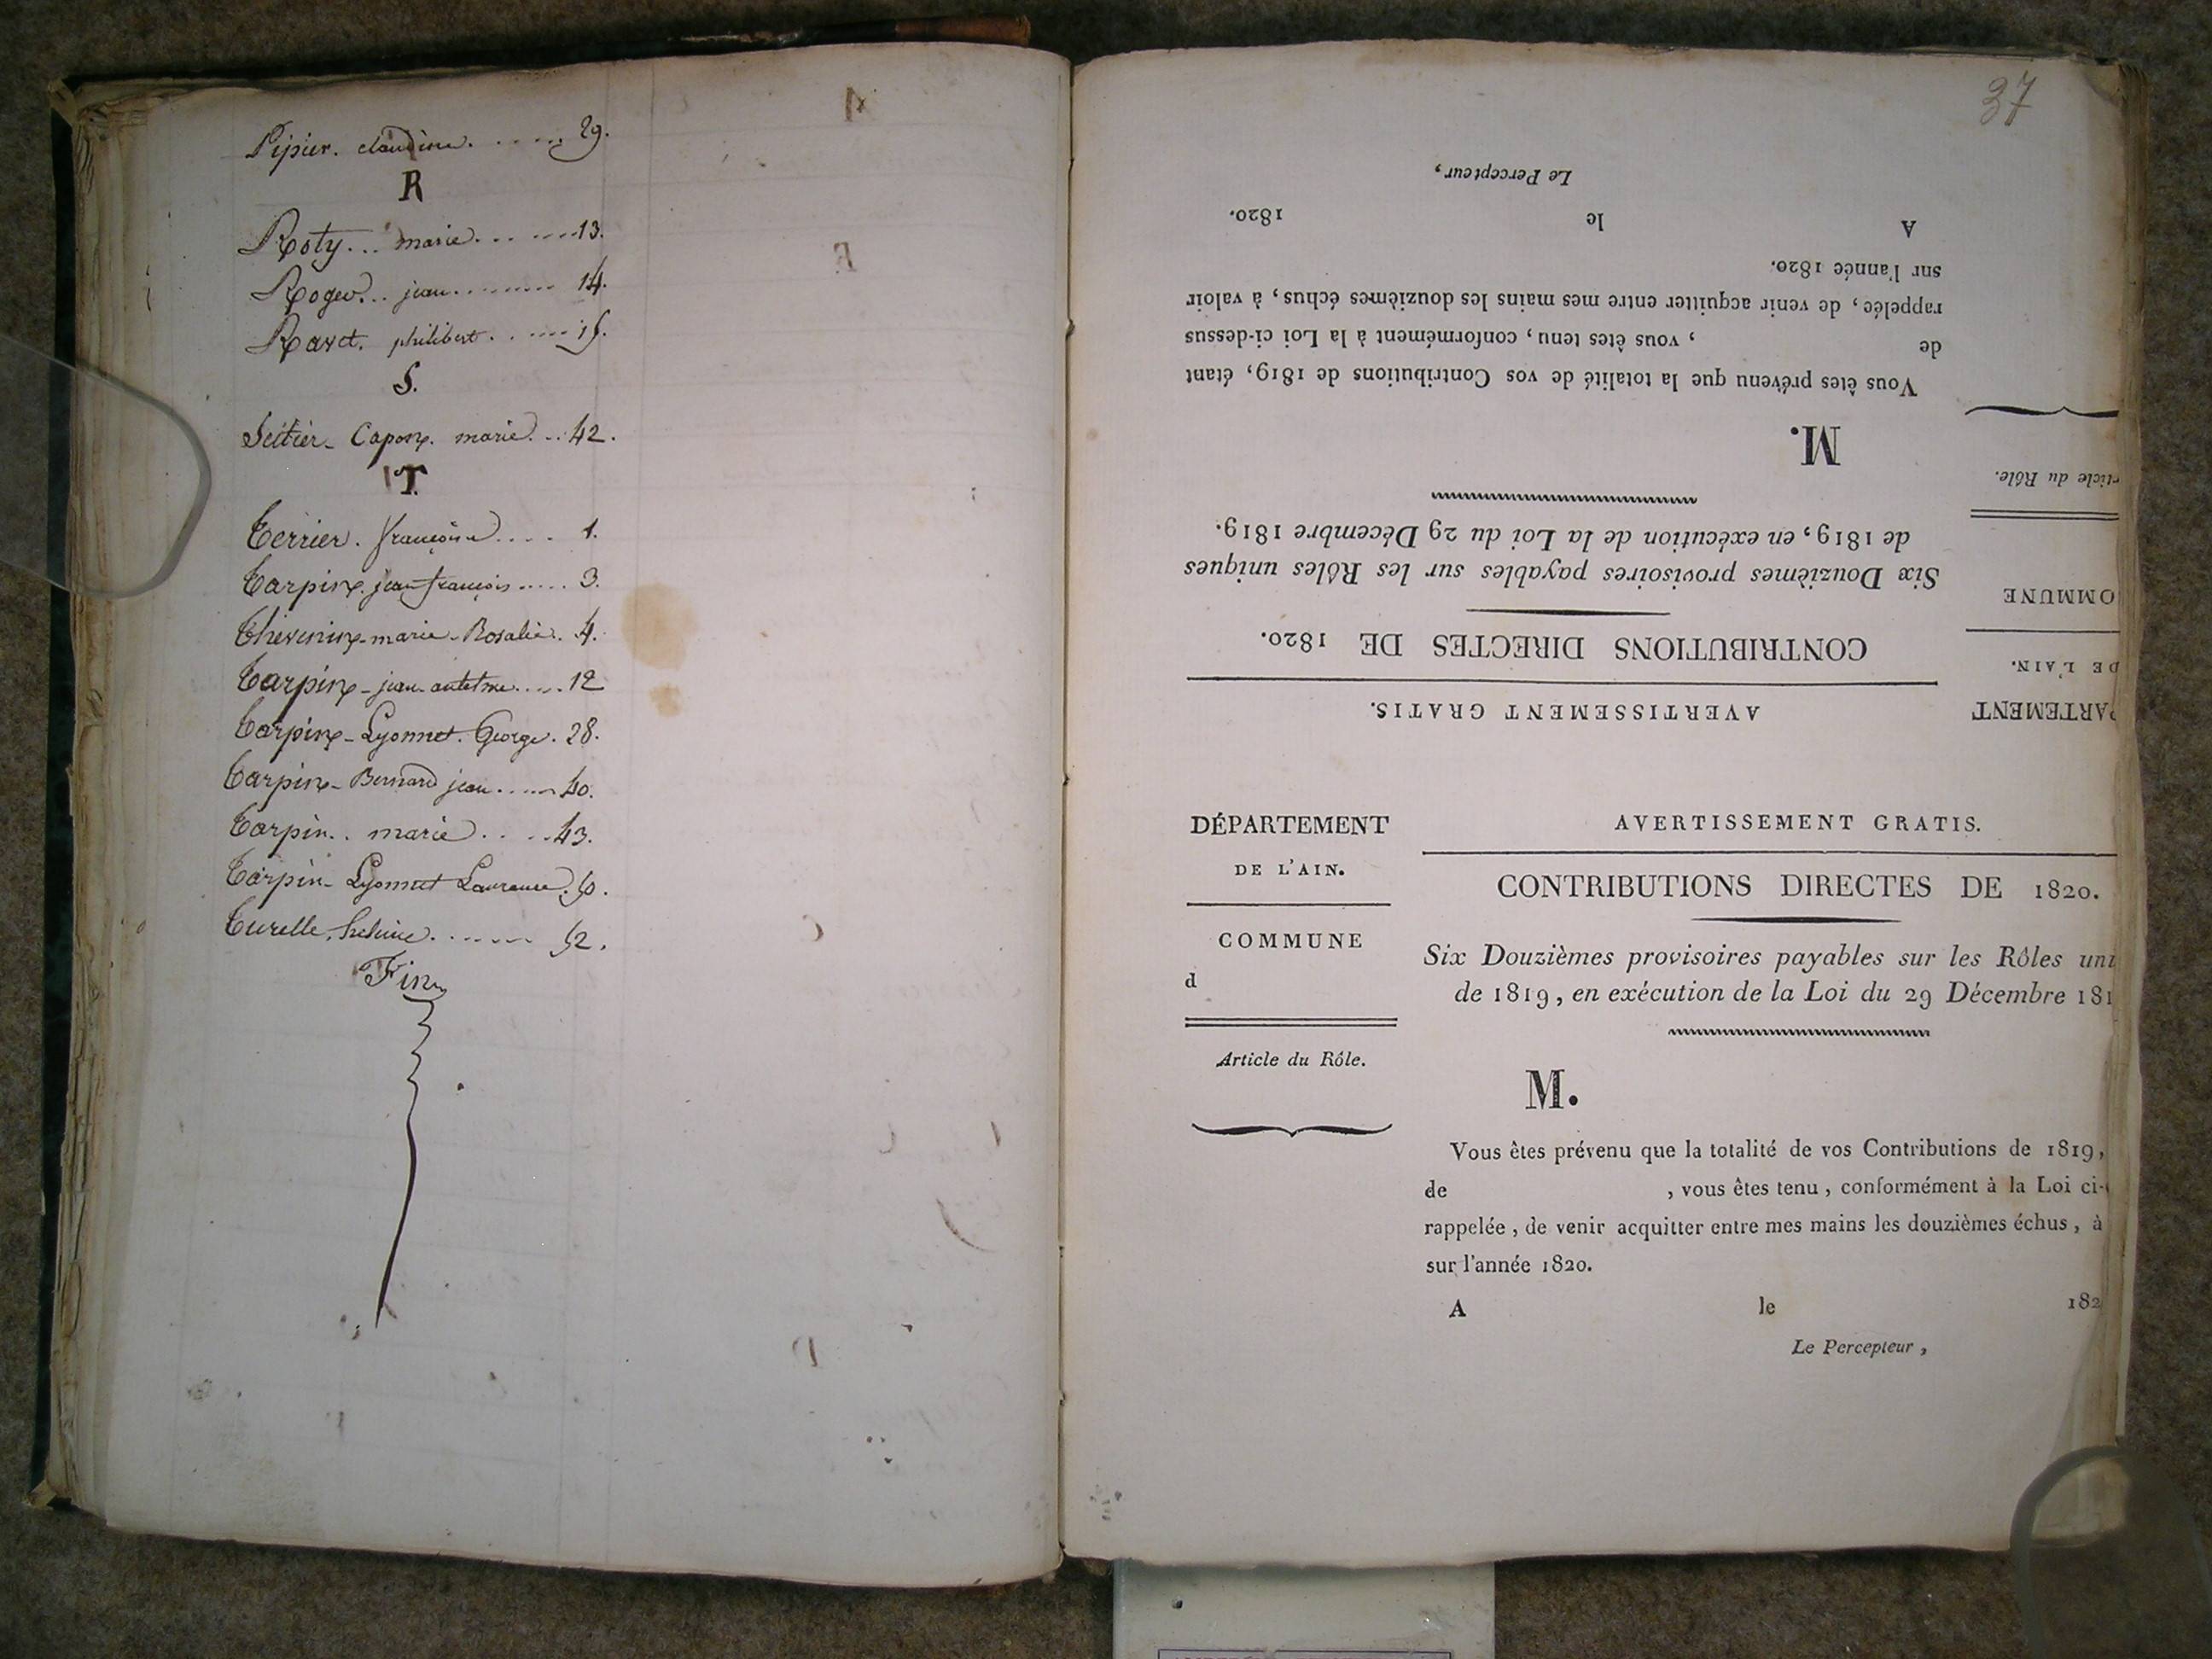 Pipier. claudine. ..... 29.
R
Roty... marie. .. ....13.
Roger... jean......... 14.
Ravet. philibert. . .... 15.
S.
Seitier- Capon. marie. ..42.
T.
Terrier. françoise.... 1.
Tarpin. jean françois ..... 3.
Thevenin-marie-Rosalie. 4.
Tarpin-jean antelme..... 12
Tarpin-Lyonnet. George. 28.
Tarpin-Bernard jean..... 40.
Tarpin.. marie. . . .43.
Tarpin- Lyonnet Laurence. 50.
Turelle. ........ 52.
Fin
37
Le Percepteur,
A le 1820.
sur l'année 1820.
rappelée, de venir acquitter entre mes mains les douzièmes échus, à valoir
de , vous êtes tenu, conformément à la Loi ci-dessus
Vous êtes prévenu que la totalité de vos Contributions de 1819, étant
M.
rticle du Rôle.
de 1819, en exécution de la Loi du 29 Décembre 1819.
Six Douzièmes provisoires payables sur les Rôles uniques
OMMUNE
CONTRIBUTIONS DIRECTES DE 1820.
DE L'AIN.
AVERTISSEMENT GRATIS.
PARTEMENT
DÉPARTEMENT
DE L'AIN.
COMMUNE
d
Article du Rôle.
AVERTISSEMENT GRATIS.
CONTRIBUTIONS DIRECTES DE 1820.
Six Douzièmes provisoires payables sur les Rôles uni
de 1819, en exécution de la Loi du 29 Décembre 181
M.
Vous êtes prévenu que la totalité de vos Contributions de 1819,
de , vous êtes tenu, conformément à la Loi ci-
rappelée, de venir acquitter entre mes mains les douzièmes échus, à
sur l'année 1820.
A le 182
Le Percepteur,